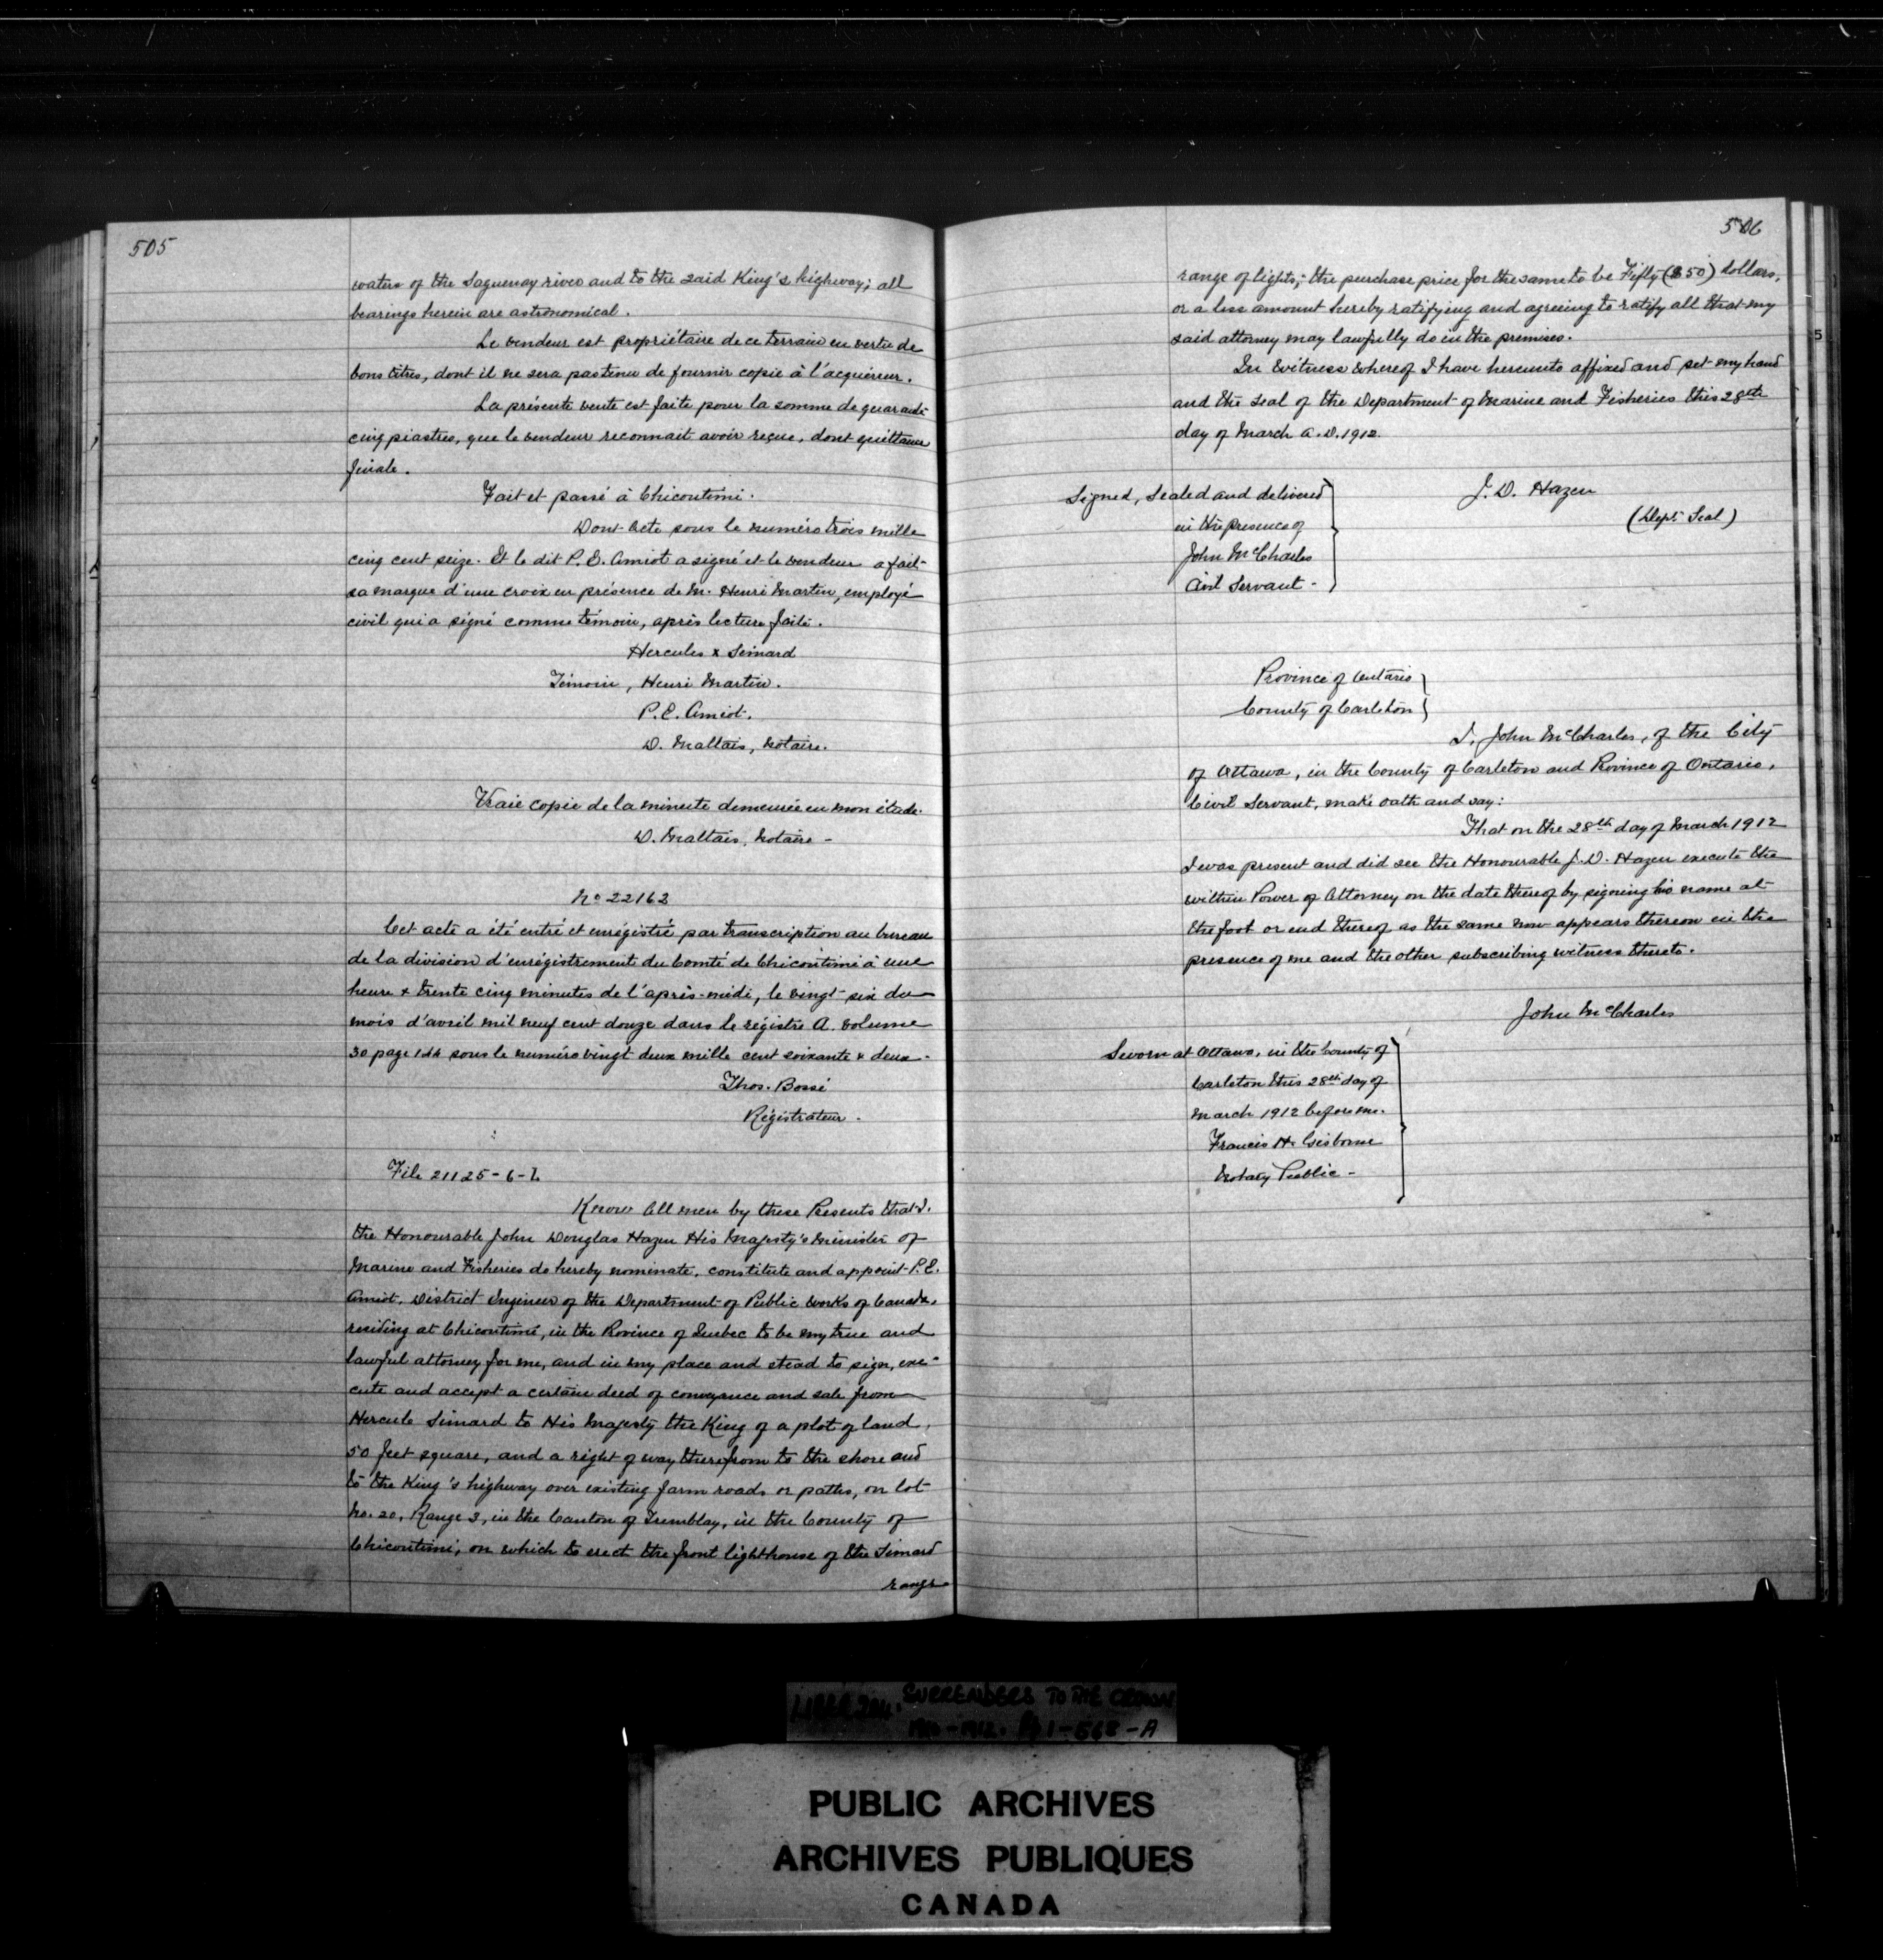 505
waters of the Saguenay river and to the said King's highway; all
bearings herein are astronomical.
Le vendeur est propriétaire de ce terrain en vertu de
bons titres, dont il ne sera pas tenu de fournir copie à l'acquéreur.
La présente vente est faite pour la somme de quarante
cinq piastres, que le vendeur reconnait avoir reçue, dont quittance
finale.
Fait et passé à Chicoutimi.
Dont Acte sous le numéro trois mille
cinq cent seize. Et le dit P. E. Amiot a signé et le vendeur a fait
sa marque d'une croix en présence de M. Henri Martin, employé
civil qui a signé comme témoin, après lecture faite.
Hercules x Simard
Témoin, Henri Martin.
P. E. Amiot.
D. Maltais, Notaire.
Vraie copie de la minute demeurée en mon étude.
D. Maltais, Notaire -
No 22162
Cet acte a été entré et enrégistré par transcription au bureau
de la division d'enrégistrement du Comté de Chicoutimi à une
heure & trente cinq minutes de l'après-midi, le vingt-six du
mois d'avril mil neuf cent douze dans le régistre A. volume
30 page 144 sous le numéro vingt deux mille cent soixante & deux -
Thos. Bossé
Régistrateur -
File 21125-6-L
Know All men by these Presents that I,
the Honourable John Douglas Hazen His Majesty's Minister of
Marine and Fisheries do hereby nominate, constitute and appoint P. E.
Amiot, District Engineer of the Department of Public Works of Canada,
residing at Chicoutimi, in the Province of Quebec to be my true and
lawful attorney for me, and in my place and stead to sign, exe-
cute and accept a certain deed of conveyance and sale from
Hercule Simard to His Majesty the King of a plot of land,
50 feet square, and a right of way therefrom to the shore and
to the King's highway over existing farm roads or paths, on lot
No. 20, Range 3, in the Canton of Tremblay, in the County of
Chicoutimi; on which to erect the front lighthouse of the Simard
range
506
range of lights; the purchase price for the same to be Fifty ($50) dollars,
or a less amount hereby ratifying and agreeing to ratify all that my
said attorney may lawfully do in the premises.
In Witness Whereof I have hereunto affixed and set my hand
and the Seal of the Department of Marine and Fisheries this 28th
day of March A.D. 1912.
Signed, Sealed and delivered
in the presence of
John McCharles
Civil Servant -
J. D. Hazen
(Dept. Seal)
Province of Ontario
County of Carleton
I, John McCharles, of the City
of Ottawa, in the County of Carleton and Province of Ontario,
Civil Servant, make oath and say:
That on the 28th day of March 1912
I was present and did see the Honourable J. D. Hazen execute the
within Power of Attorney on the date thereof by signing his name at
the foot or end thereof as the same now appears thereon in the
presence of me and the other subscribing witness thereto.
John McCharles
Sworn at Ottawa, in the County of
Carleton this 28th day of
March 1912 before me.
Francis H. Gisborne
Notary Public -
SURRENDERS TO THE CROWN
1910-1912. Pg 1-568-A
PUBLIC ARCHIVES
ARCHIVES PUBLIQUES
CANADA